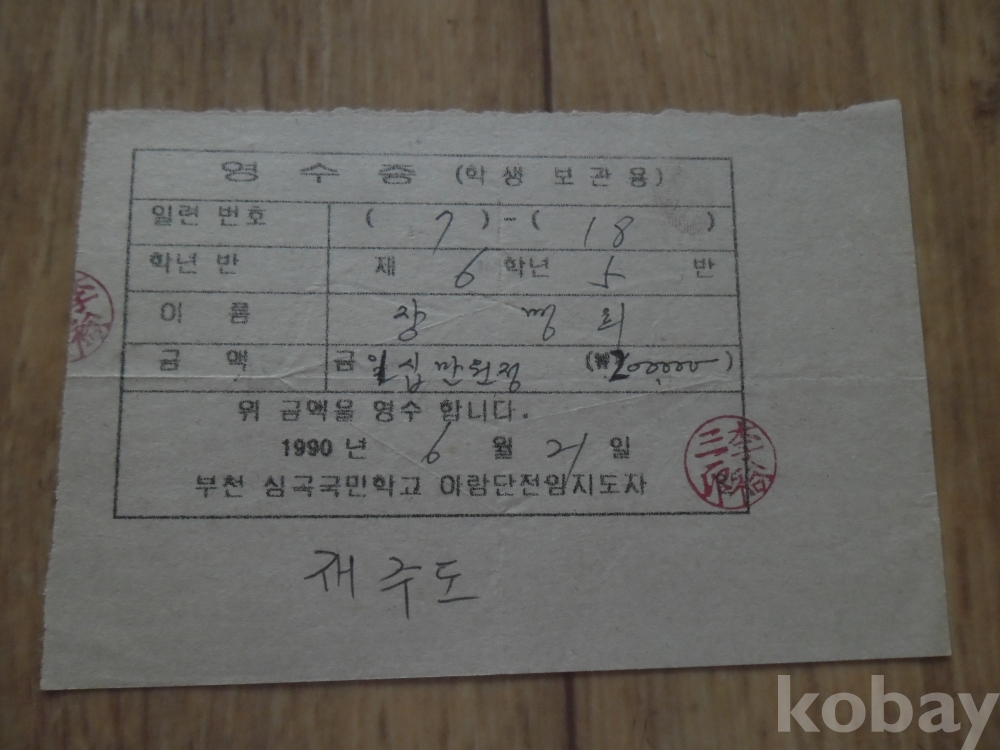 영 수 증 (학 생 보 관 용)
일련 번호 ( 7 ) - ( 18 )
학년 반 제 6 학년 5 반
이 름
금 액 금 십만원정 (₩ )
위 금액을 영수 합니다.
1990 년 6 월 21 일
부천 심곡국민학교 아람단전임지도자
재 주 도
kobay